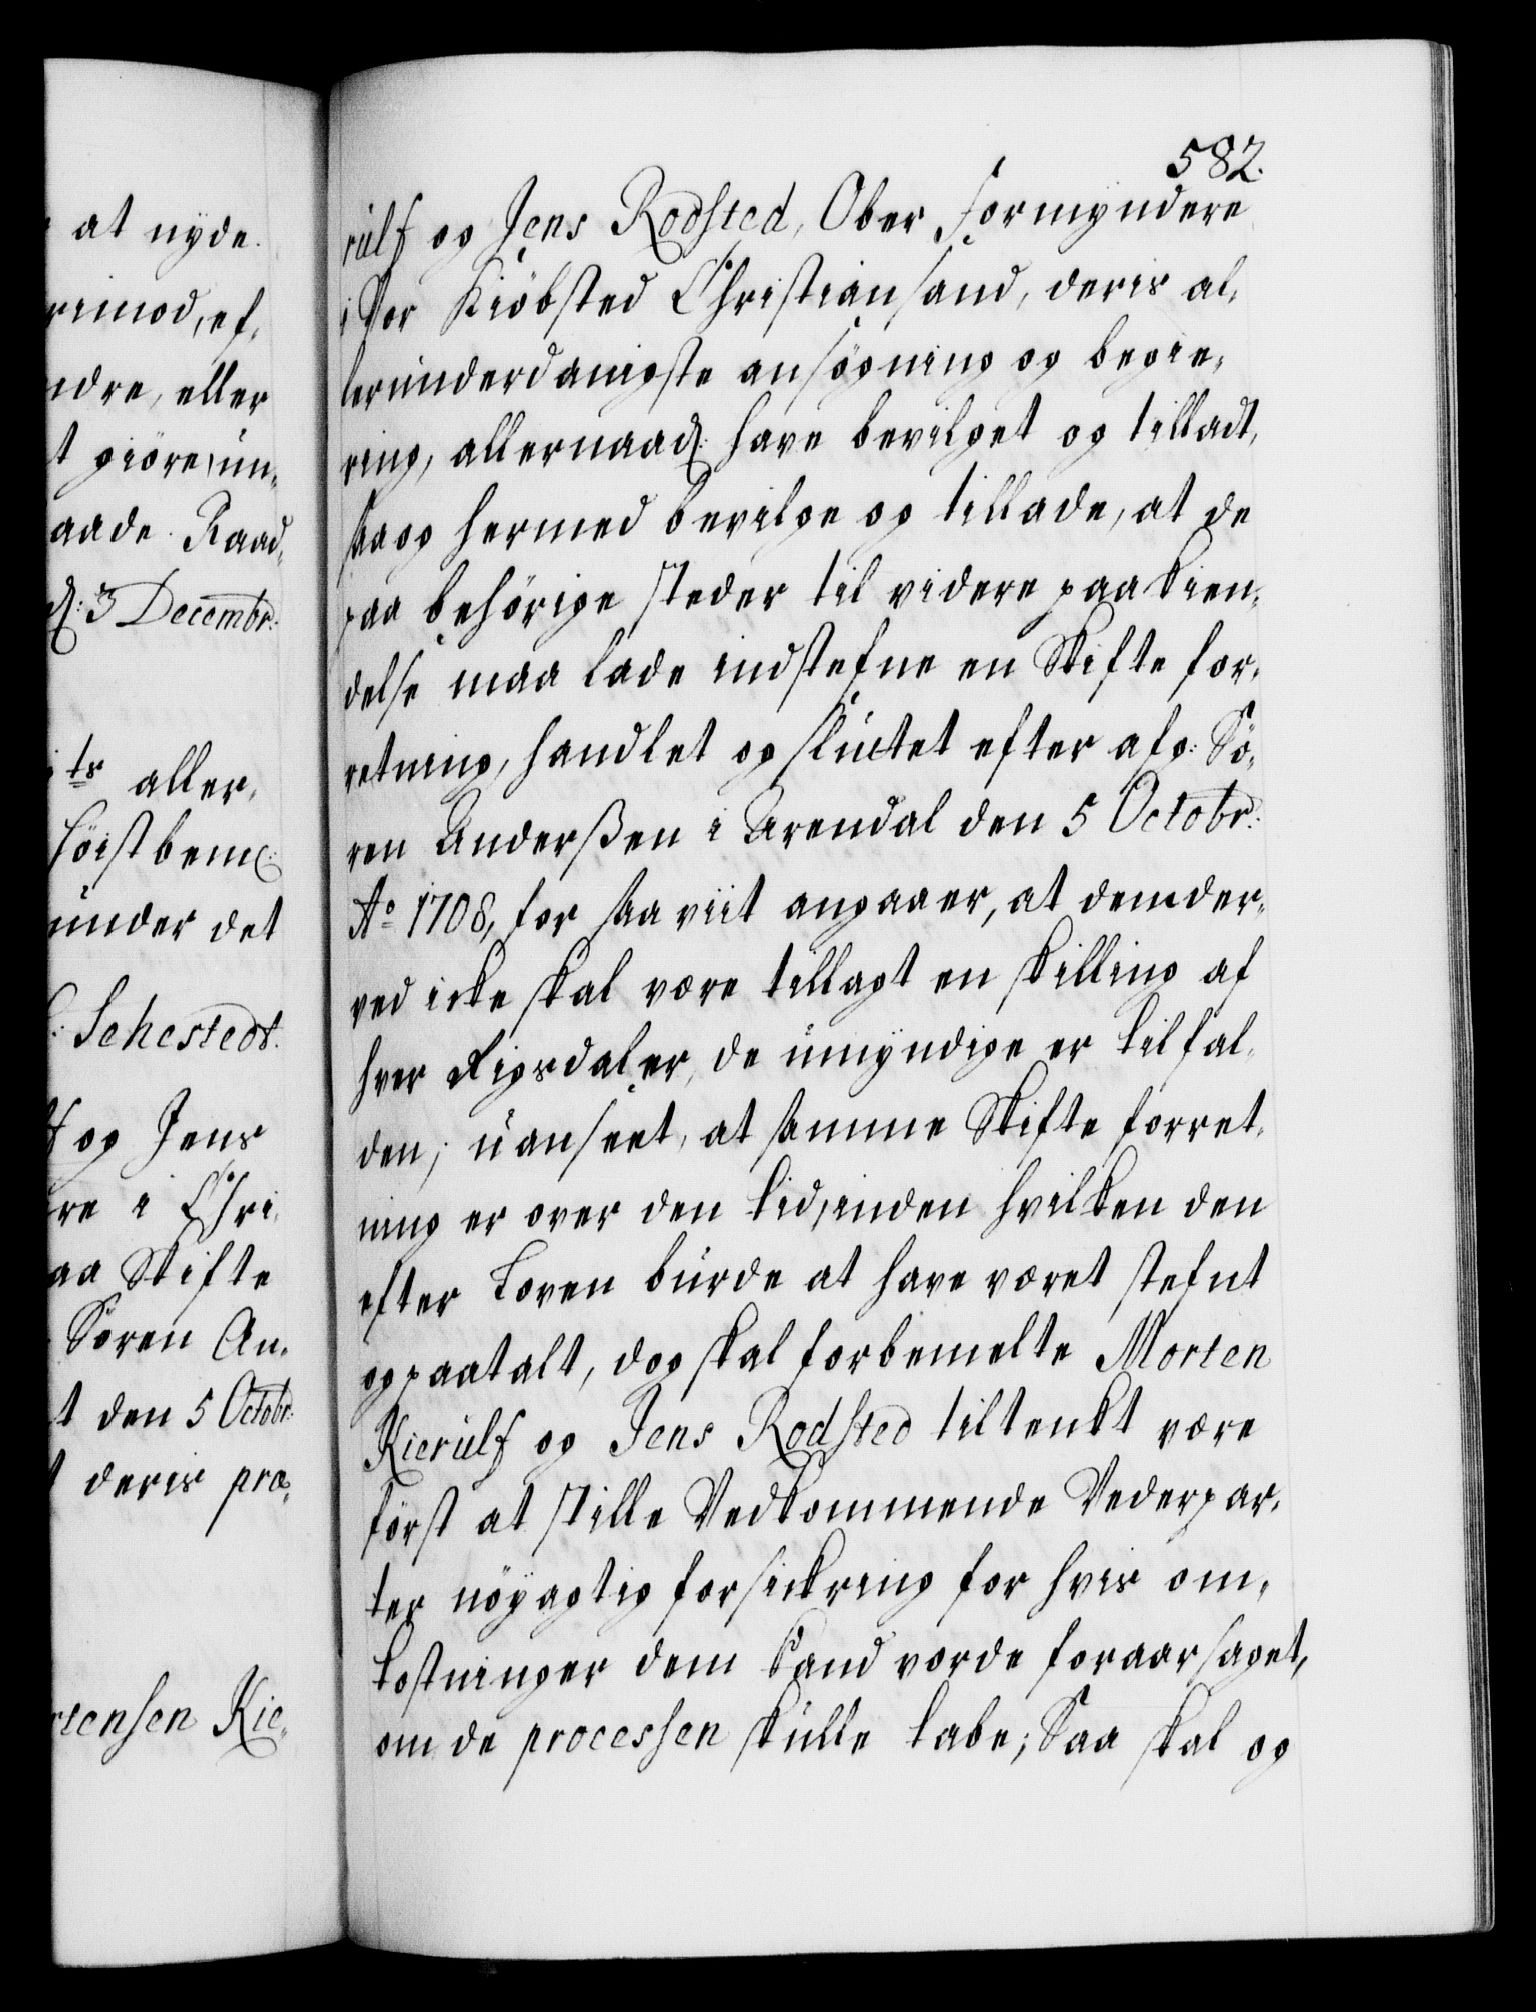 at nyde.
rimod, ef-
ndre, eller
t giöre, un-
aade. Raad-
d: 3 Decembr:
ts aller-
höistbem:
under det
Sehestedt.
og Jens
re i Chri-
aa Skifte
Sören An-
t den 5 Octobr:
deris præ-
rtensen Kie-
582.
rulf og Jens Rodsted, Ober Formyndere
i Vor Kiöbsted Christiansand, deris al-
lerunderdanigste ansögning og begie-
ring, allernaad: have bevilget og tilladt,
saa og hermed bevilge og tillade, at de
paa behörige steder til videre paakien-
delse maa lade indstefne en Skifte for-
retning, handlet og sluttet efter afg: Sö-
ren Anderßen i Arendal den 5 Octobr:
Ao 1708, for saa viit angaaer, at dem der-
ved icke skal være tillagt en skilling af
hver Rigsdaler, de umyndige er tilfal-
den; uanseet, at samme Skifte forret-
ning er over den tid, inden hvilken den
efter Loven burde at have været stefnt
og paatalt, dog skal forbemelte Morten
Kierulf og Jens Rodsted tiltenkt være
först at stille Vedkommende Vederpar-
ter nöyagtig forsickring for hvis om-
kostninger dem kand vorde foraarsaget,
om de processen skulle tabe; Saa skal og